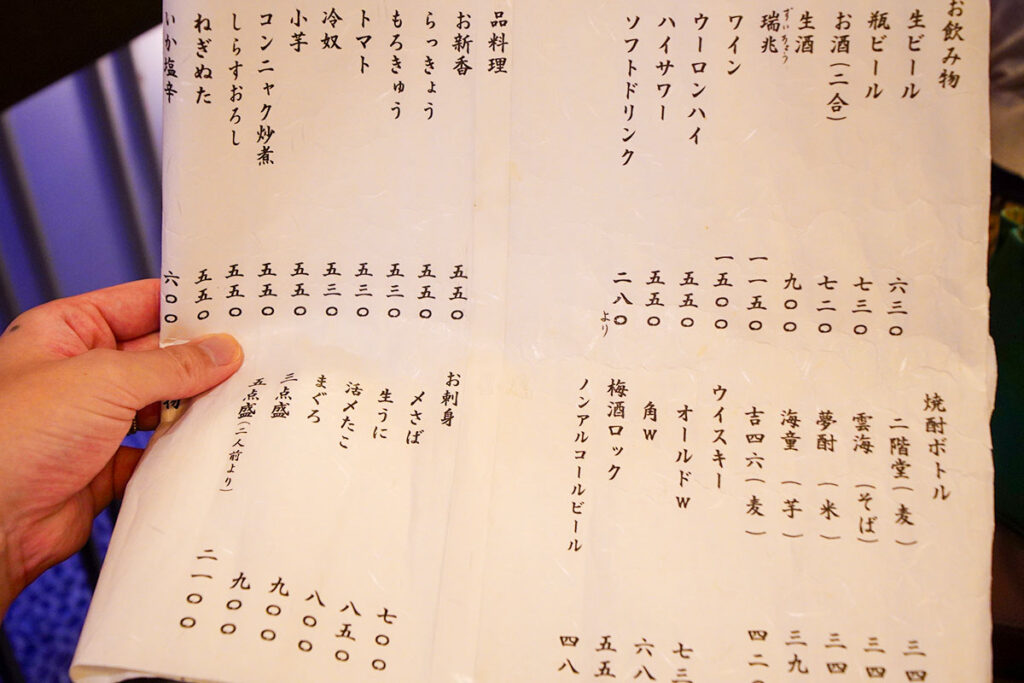 お飲み物
生ビール 六三〇
瓶ビール 七三〇
お酒(二合) 七二〇
生酒 九〇〇
瑞兆 ずいちょう 一一五〇
ワイン 一五〇〇
ウーロンハイ 五五〇
ハイサワー 五五〇
ソフトドリンク 二八〇より
品料理
お新香 五五〇
らっきょう 五五〇
もろきゅう 五三〇
トマト 五三〇
冷奴 五三〇
小芋 五五〇
コンニャク炒煮 五五〇
しらすおろし 五五〇
ねぎぬた 五五〇
いか塩辛 六〇〇
焼酎ボトル
二階堂(麦) 三四
雲海(そば) 三四
夢酎(米) 三四
海童(芋) 三九
吉四六(麦) 四二〇
ウイスキー
オールドW 七三
角W 六八
梅酒ロック 五五
ノンアルコールビール 四八
お刺身
〆さば 七〇〇
生うに 八五〇
活〆たこ 八〇〇
まぐろ 九〇〇
三点盛 九〇〇
五点盛(二人前より) 二一〇〇
物